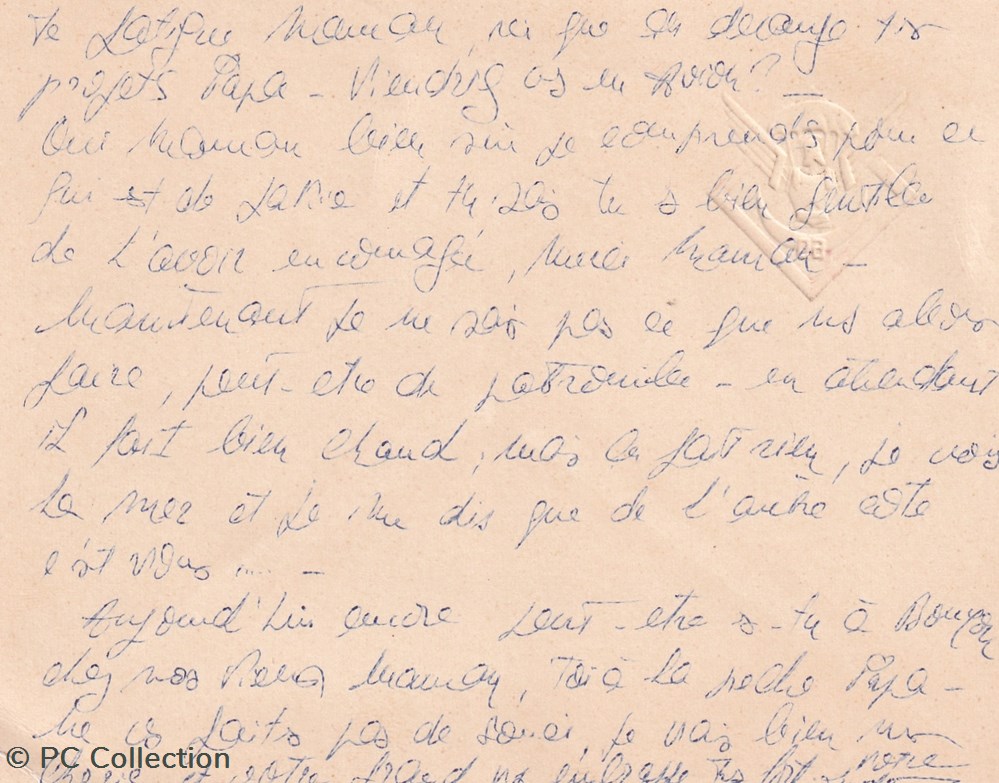 te fatigue Maman, ni que ça dérange tes
projets Papa - Viendrez vs en Avion? -
Oui Maman bien sûr je comprends pour ce
qui est de la vie et tu sais tu es bien gentille
de l'avoir encouragée, merci Maman -
Maintenant je ne sais pas ce que ns allons
faire, peut-etre de patrouille - en attendant
il fait bien chaud, mais ça fait rien, je vois
la mer et je me dis que de l'autre côté
c'est vous .... -
Aujourd'hui encore peut-etre es-tu à
chez nos vieux Maman, Toi à la peche Papa -
Ne vs faits pas de souci, je vais bien
et votre grand vs embrasse très fort notre
© PC Collection